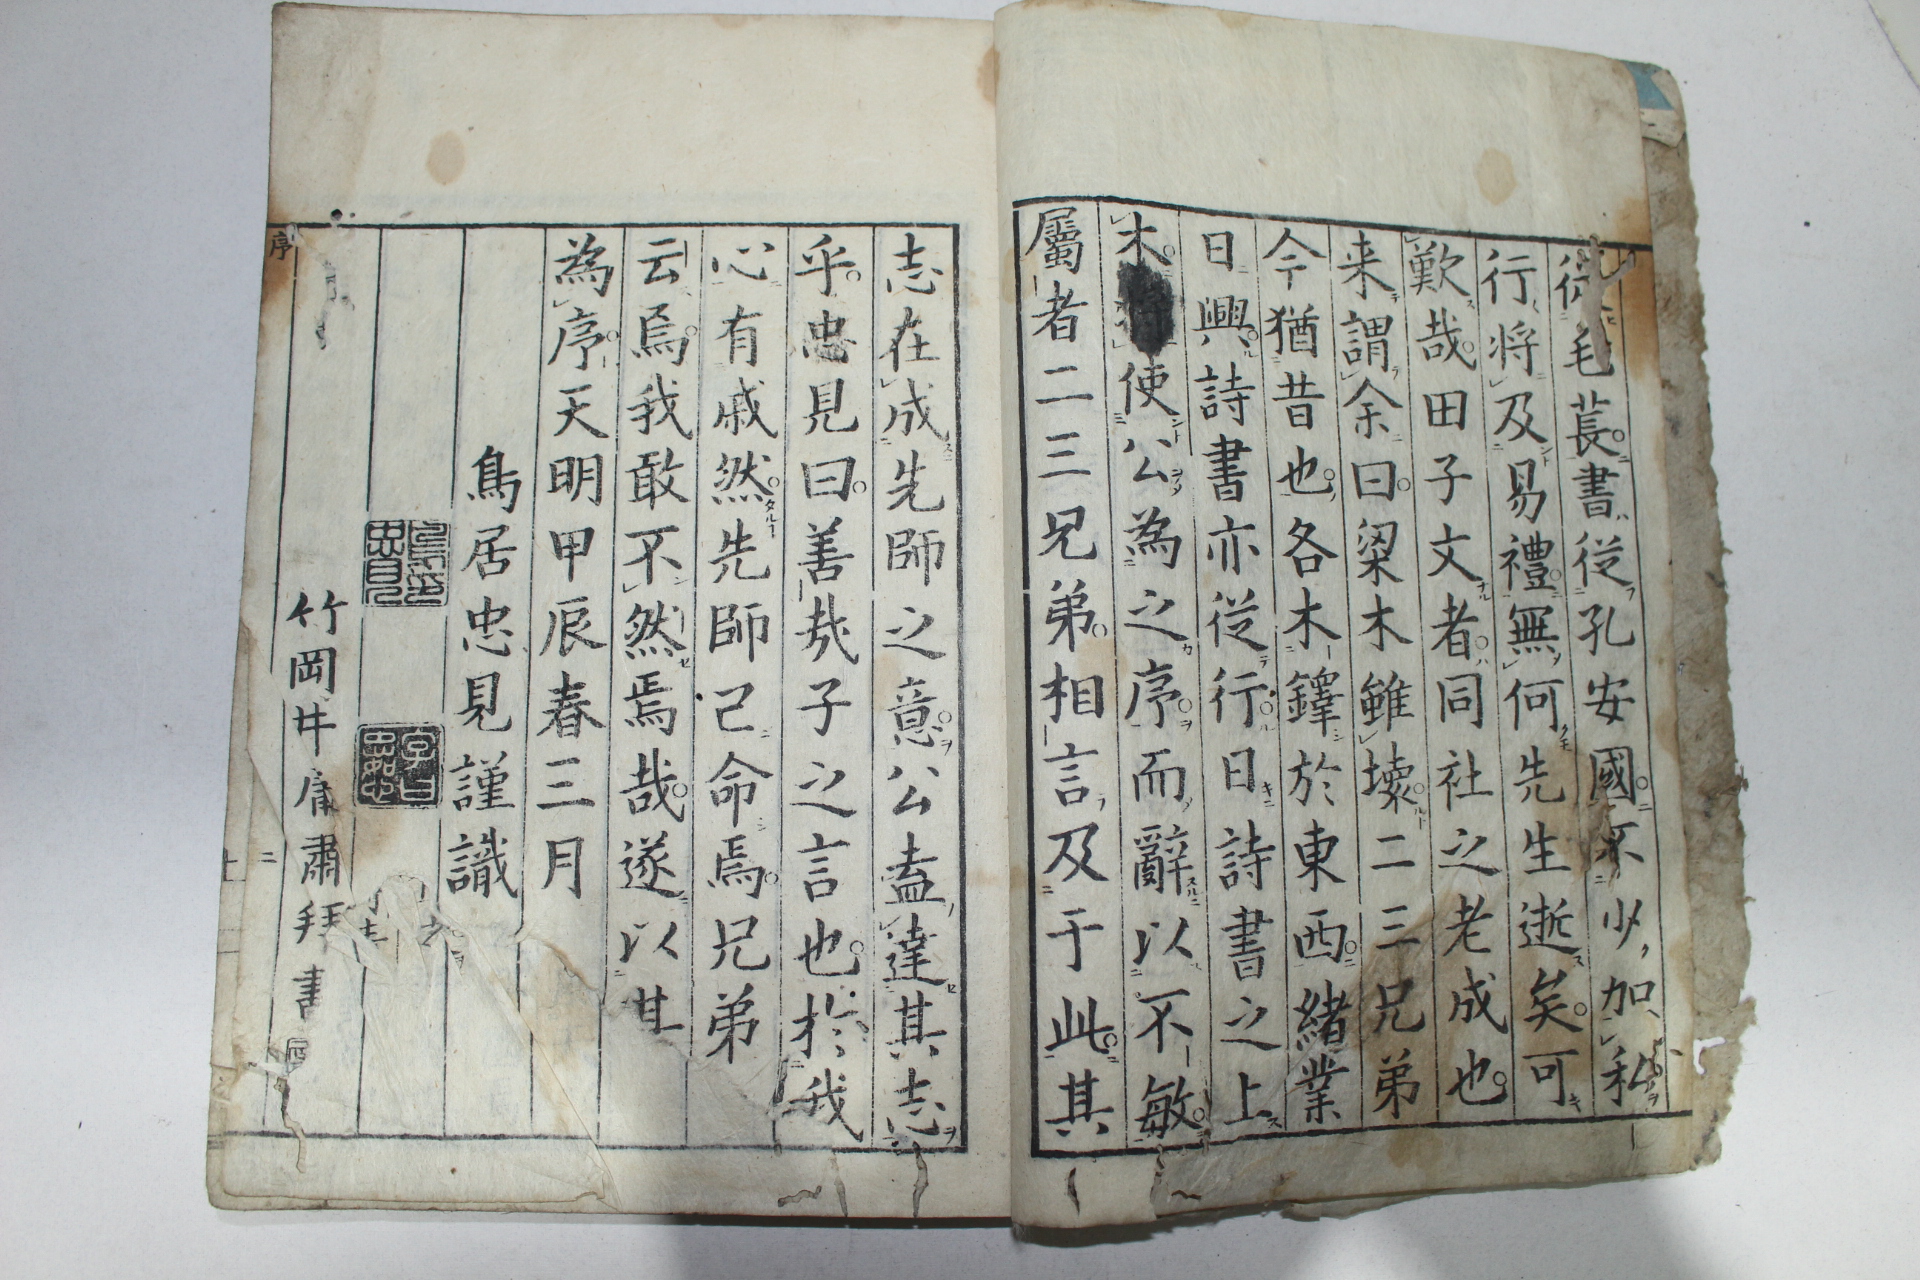 從毛萇書從孔安國不少加私
行將及易禮無何先生逝矣可
歎哉田子文者同社之老成也
来謂余曰梁木雖壞二三兄弟
今猶昔也各木鐸於東西緒業
日興詩書亦從行日詩書之上
木將使公為之序而辭以不敏
屬者二三兄弟相言及于此其
志在成先師之意公盍達其志
乎忠見曰善哉子之言也於我
心有戚然先師已命焉兄弟
云焉我敢不然焉哉遂以其
為序天明甲辰春三月
鳥居忠見謹識
竹岡井庸肅拜書
序
二